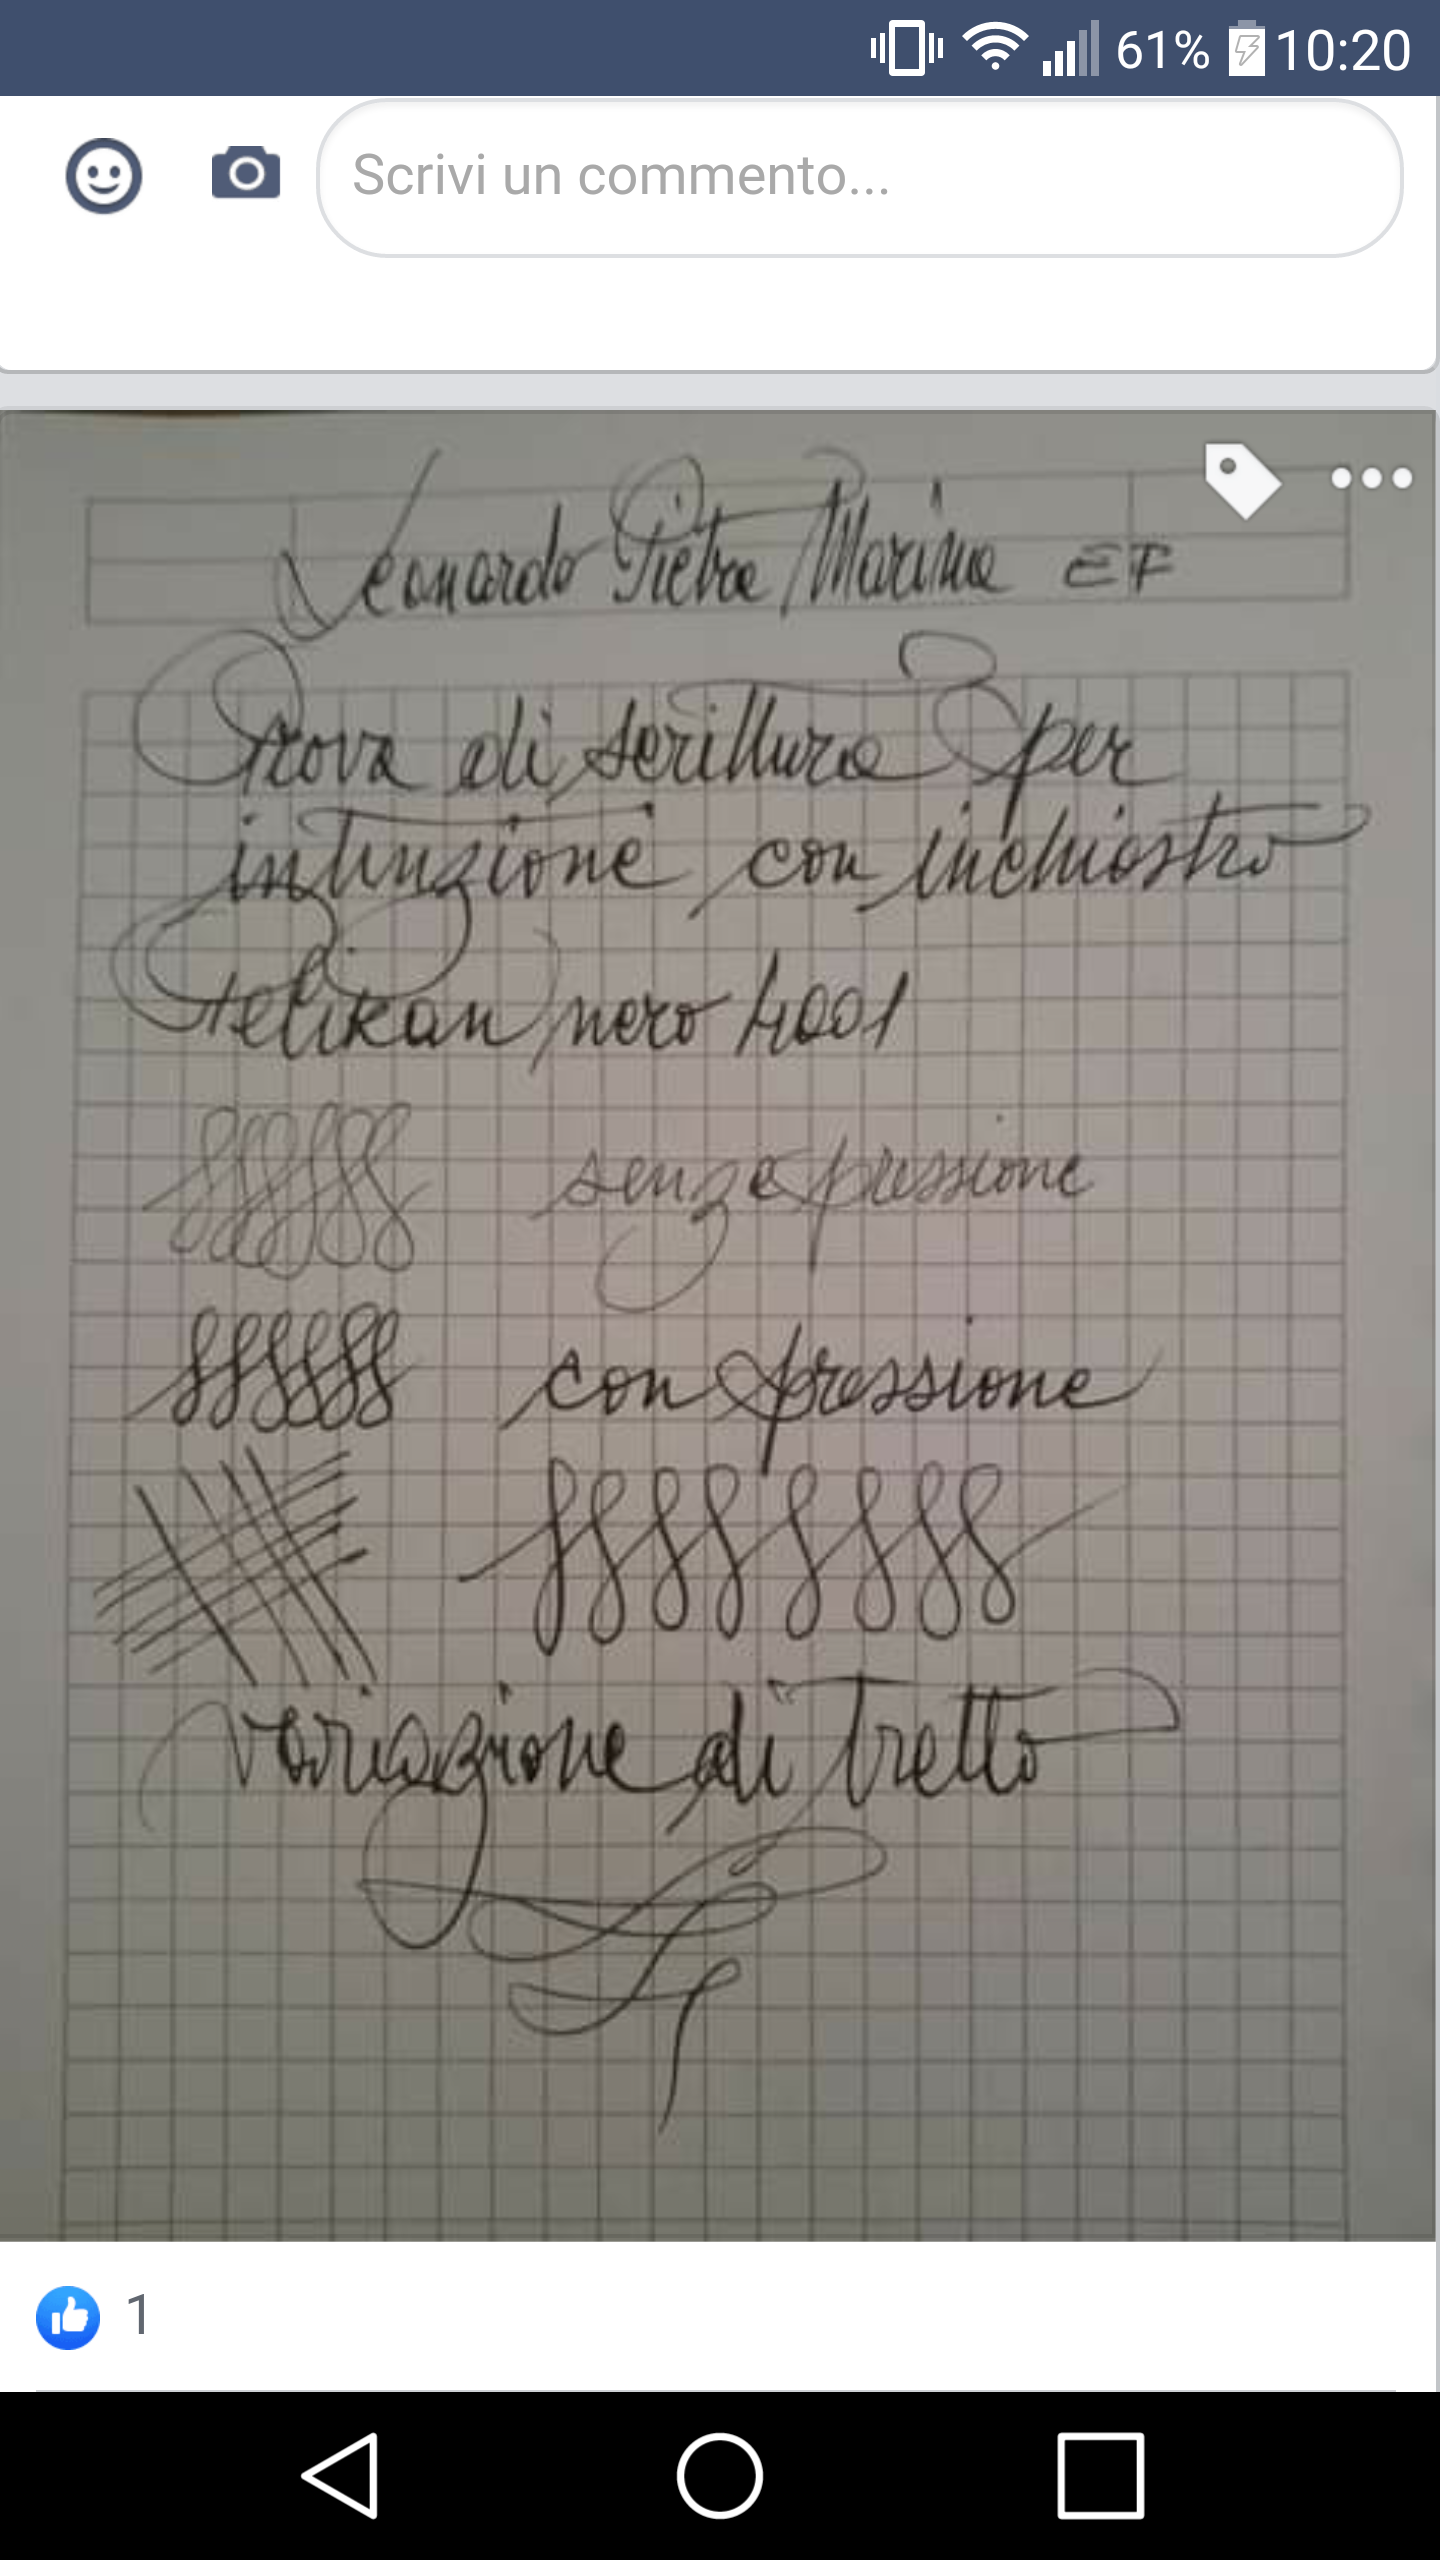 61% 10:20
Scrivi un commento...
Leonardo Pietra Marina EF
Prova di scrittura per
intinzione con inchiostro
Pelikan nero 4001
senza pressione
con pressione
variazione di tratto
1